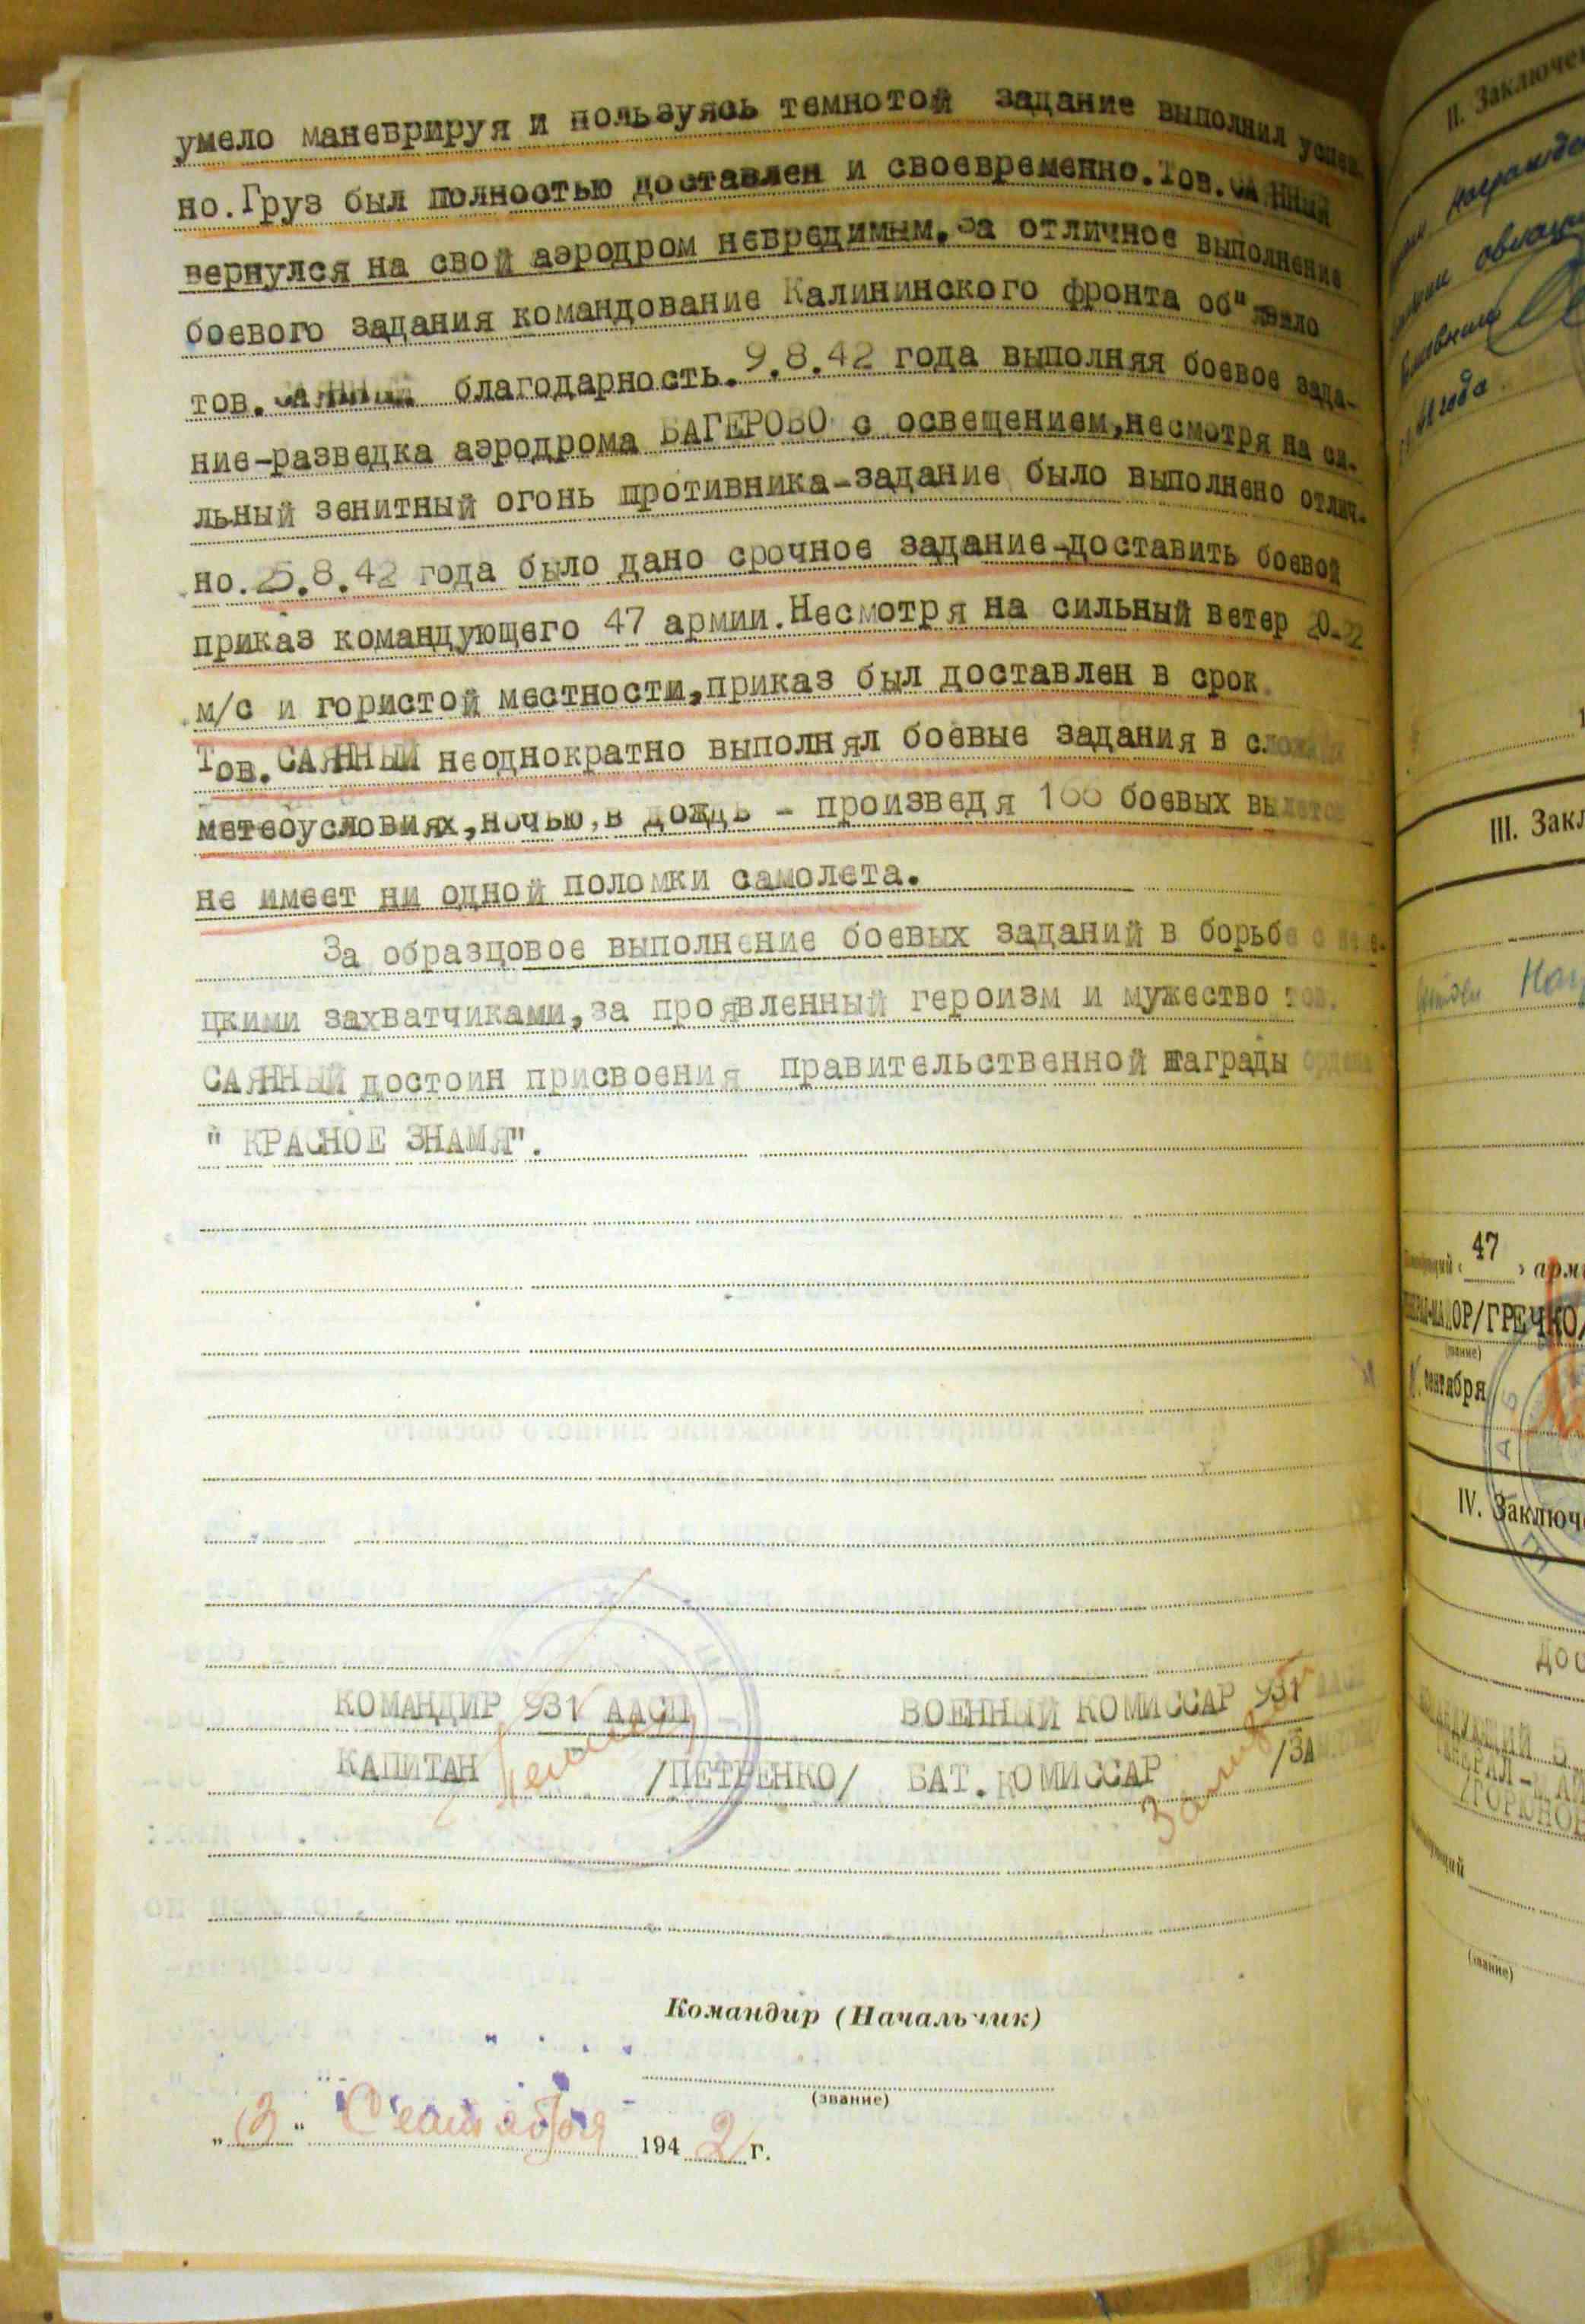 умело маневрируя и пользуясь темнотой задание выполнил успеш
но.Груз был полностью доставлен и своевременно.Тов.САЯННЫЙ
вернулся на свой аэродром невредимым.За отличное выполнение
боевого задания командование Калининского фронта об"явило
тов.САЯННЫЙ благодарность.9.8.42 года выполняя боевое зада-
ние-разведка аэродрома БАГЕРОВО с освещением,несмотря на си-
льный зенитный огонь противника-задание было выполнено отлич-
но.25.8.42 года было дано срочное задание-доставить боевой
приказ командующего 47 армии.Несмотря на сильный ветер 20-22
м/с и гористой местности,приказ был доставлен в срок.
Тов.САЯННЫЙ неоднократно выполнял боевые задания в сложных
метеоусловиях,ночью,в дождь - произведя 166 боевых вылетов
не имеет ни одной поломки самолета.
За образцовое выполнение боевых заданий в борьбе с
цкими захватчиками,за проявленный героизм и мужество тов.
САЯННЫЙ достоин присвоения правительственной награды ордена
" КРАСНОЕ ЗНАМЯ".
КОМАНДИР 931 ААСП ВОЕННЫЙ КОМИССАР 931
КАПИТАН /ПЕТРЕНКО/ БАТ.КОМИССАР /ЗА
Командир (Начальник)
(звание)
„3" Сентября 1942 г.
II. Заключе
III. Закл
47 арм
ОР/ГРЕЧКО/
(звание)
сентября
IV. Заключ
ДОС
/ГОРЮНОВ
(звание)